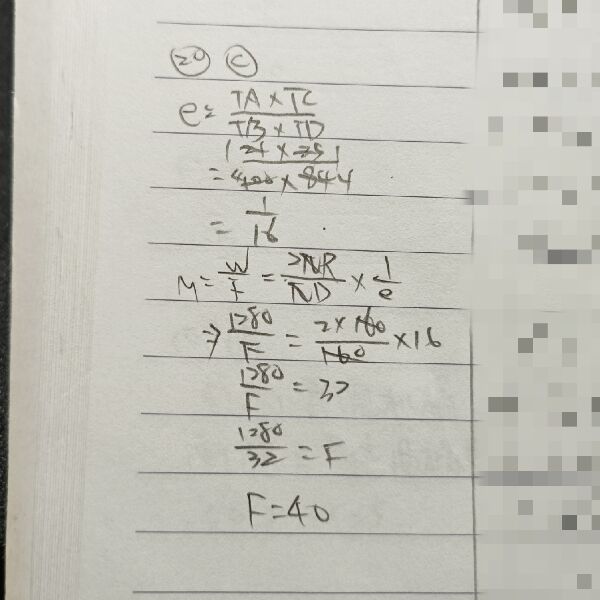 20 C
e = TA × TC / TB × TD
= 1/16
M = W/F = 2πR/πD × 1/e
⇒ 1280/F = 2 × 160/160 × 16
1280/F = 32
1280/32 = F
F = 40